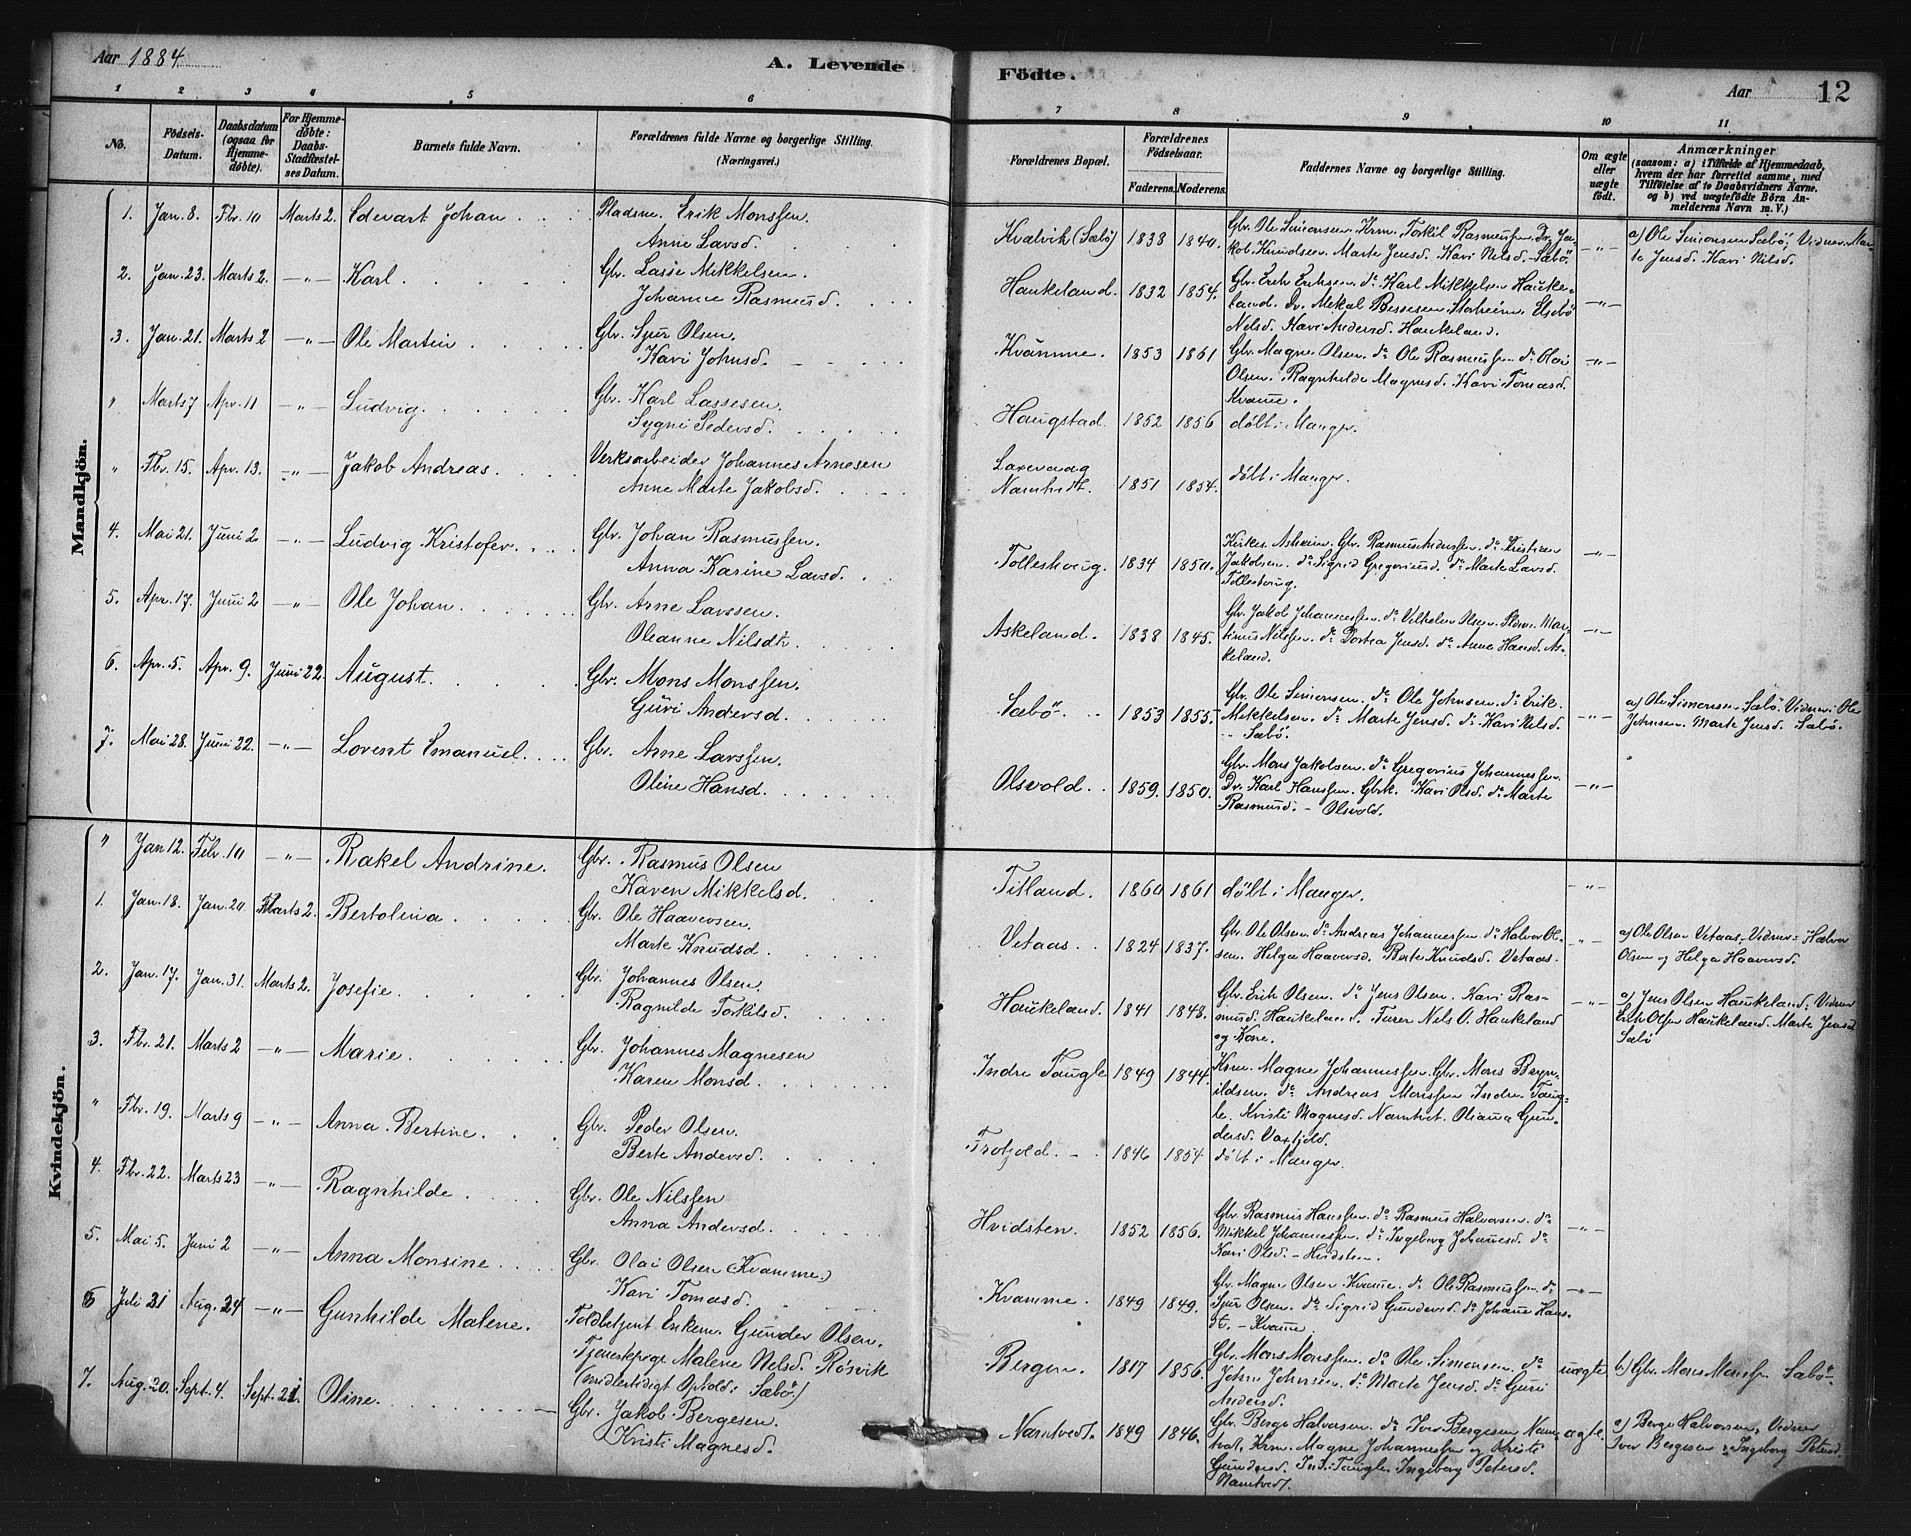 Aar 1884
A. Levende
Födte.
Aar
12
1 2 3 4 5 6
7 8 9 10 11
No.
Födsels-
Datum.
Daabsdatum
(ogsaa for
Hjemme-
døbte).
For Hjemme-
døbte:
Daabs-
Stadfæstel-
ses Datum.
Barnets fulde Navn.
Forældrenes fulde Navne og borgerlige Stilling.
(Næringsvei.)
Forældrenes Bopæl.
Forældrenes
Födselsaar.
Faderens. Moderens.
Faddernes Navne og borgerlige Stilling.
Om ægte
eller
uægte
født.
Anmærkninger
(saasom: a) i Tilfælde af Hjemmedaab,
hvem der har forrettet samme, med
Tilføielse af to Daabsvidners Navne.
og b) ved uægtefødte Børn An-
melderens Navn m. V.)
Mandkjön.
1. Jan. 8. Fbr. 10 Marts 2. Edevart Johan Pladsm. Erik Monssen
Anne Larsd.
Kvalvik (Sæbø) 1838 1840. Gbr. Ole Simonsen. Krm. Torkil Rasmussen. Dr. Ja-
kob Knudsen. Marte Jensd. Kari Nilsd. Sæbö
a) Ole Simonsen Sæbö, Vidner Mar-
te Jensd. Kari Nilsd.
2. Jan. 23. Marts 2. -"- Karl. Gbr. Lasse Mikkelsen.
Johanne Rasmusd.
Haukeland. 1832 1854. Gbr. Erik Eriksen. do Karl Mikkelsen Hauke-
land. Dr. Mekal Bessesen Storheim. Elsebö
Nilsd. Kari Andersd. Haukeland.
3. Jan. 21. Marts 2 -"- Ole Martin Gbr. Sjur Olsen.
Kari Johnsd.
Kvamme. 1853 1861 Gbr. Magne Olsen. do Ole Rasmussen do Olai
Olsen. Ragnhilde Magnesd. Kari Tomasd.
Kvamme.
" Marts 7 Apr. 11 -"- Ludvig. Gbr. Karl Lassesen.
Sygni Pedersd.
Haugstad. 1852 1856 døbt i Manger.
" Fbr. 15. Apr. 13. -"- Jakob Andreas. Verksarbeider Johannes Arnesen
Anne Marte Jakobsd.
Laxevaag
Namtvedt. 1851 1854. døbt i Manger.
4. Mai 21. Juni 2 -"- Ludvig Kristofer. Gbr. Johan Rasmussen.
Anna Karine Larsd.
Tolleshoug. 1834 1850. Kirkes. Askheim. Gbr. Rasmus Anderssen. do Kristian
Jakobsen. do Sigrid Gregoriusd. do Marte Larsd.
5. Apr. 17. Juni 2 -"- Ole Johan Gbr. Arne Larssen.
Oleanne Nilsdtr.
Askeland. 1838 1845. Gbr. Jakob Johannessen. do Vilhelm Olsen. Mar-
tinus Nilssen. do Dortea Jensd. do Anna Hansd. As-
keland.
6. Apr. 5. Apr. 9. Juni 22. August. Gbr. Mons Monssen.
Guri Andersd.
Sæbö. 1853 1855. Gbr. Ole Simonsen. do Ole Johnsen. do Erik
Mikkelsen. do Marte Jensd. do Kari Nilsd.
Sæbö.
a) Ole Simonsen Sæbö. Vidner Ole
Johnsen. Marte Jensd. Sæbö.
7. Mai 28. Juni 22. -"- Lorent Emanuel. Gbr. Arne Larssen.
Oline Hansd.
Olsvold. 1859. 1850. Gbr. Mons Jakobsen. do Gregorius Johannessen.
Dr. Karl Hanssen. Gbrk. Kari Olsd. do Marte
Rasmusd. - Olsvold.
Kvindekjön.
" Jan 12. Febr. 10 -"- Rakel Andrine. Gbr. Rasmus Olsen
Karen Mikkelsd.
Titland. 1860 1861 døbt i Manger. -"-
1. Jan. 18. Jan. 20 Marts 2. Bertolina Gbr. Ole Haaversen.
Marte Knudsd.
Vetaas. 1824 1837. Gbr. Ole Olsen. do Andreas Johannessen do Halvor Ol-
sen. Helga Haaversd. Berte Knudsd. Vetaas.
a) Ole Olsen Vetaas. Vidner Halvor
Olsen og Helga Haaversd.
2. Jan. 17. Jan. 31. Marts 2. Josefie. Gbr. Johannes Olsen.
Ragnilde Torkilsd.
Haukeland. 1841 1848. Gbr. Erik Olsen. do Jens Olsen. Kari Ras-
musd. Haukeland. Furer Nils O. Haukeland
og Kone.
a) Jens Olsen Haukeland, Vidner
Erik Olsen Haukeland. Marte Jensd
Sæbö
3. Fbr. 21. Marts 2 -"- Marie. Gbr. Johannes Magnesen
Karen Monsd.
Indre Taugle 1849 1844. Krm. Magne Johannessen. Gbr. Mons Bryn-
ildsen. do Andreas Monssen Indre Taug-
le. Kristi Magnesd. Namtvet. Oliana Gun-
dersd. Vaxfjeld.
" Fbr. 19. Marts 9 -"- Anna Bertine. Gbr. Peder Olsen.
Berte Andersd.
1846 1854 døbt i Manger.
4. Fbr. 22. Marts 23 -"- Ragnhilde Gbr. Ole Nilssen
Anna Andersd.
Hvidsten. 1852 1856. Gbr. Rasmus Hanssen. do Rasmus Halvorsen. do
Mikkel Johannessen. do Ingeborg Johannesd. do
Kari Olsd. - Hvidsten.
5. Mai 5. Juni 2 -"- Anna Monsine Gbr. Olai Olsen (Kvamme.)
Kari Tomasd.
Kvamme. 1849 1849. Gbr. Magne Olsen Kvamme. do Ole Rasmussen. do
Sjur Olsen. do Sigrid Gundersd. do Johanne Hans-
dt. - Kvamme.
6 Juli 31 Aug. 24 -"- Gunhilde Malene. Toldbetjent Enkem. Gunder Olsen.
Tjenestepige Malene Nilsd. Røsvik
(midlertidigt Ophold: Sæbö.)
Bergen. 1817 1856. Gbr. Mons Monssen. do Ole Simonsen. do
John Johnsen. do Marte Jensd. do Guri
Andersd.
uægte b) Gbr. Mons Monssen Sæbö.
7. Aug. 20. Sept. 4. Sept. 21. Oline. Gbr. Jakob Bergesen.
Kristi Magnesd.
Namtvedt. 1849 1846. Gbr. Berge Halvorsen. do Iver Bergesen Nam-
tvedt. Krm. Magne Johannessen og Kristi
Gundersd. Ind. Taugle. Ingeborg Petersd.
Namtvedt.
ægte. a) Berge Halvorsen, Vidner
Iver Bergesen & Ingeborg Petersd.